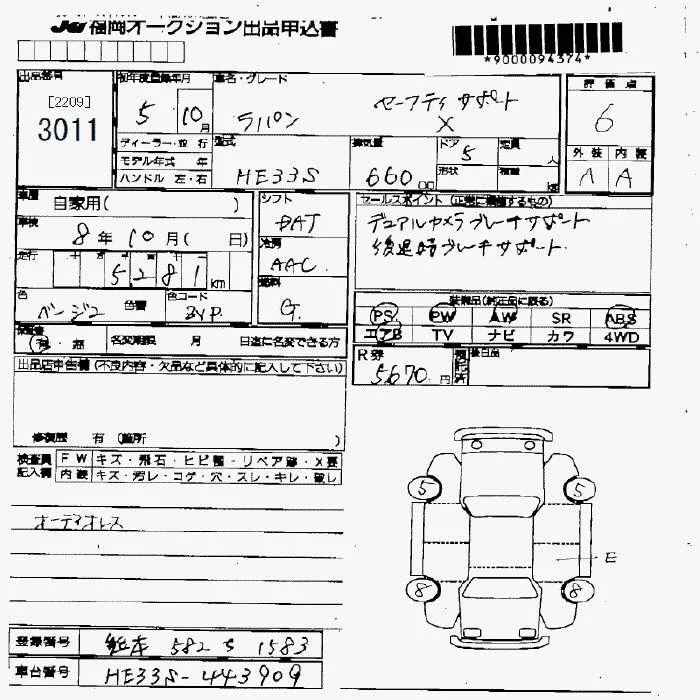 JU 福岡オークション出品申込書
*9000094374*
出品番号
[2209]
3011
初年度登録年月
5 10月
車名・グレード
ラパン セーフティサポート
X
評価点
6
ディーラー・並行
モデル年式 年
ハンドル 左・右
型式
HE33S
排気量
660cc
ドア
5
形状
定員
人
積載
外装 内装
A A
車歴
自家用( )
車検
8年10月( 日)
走行
5281km
色
ベージュ
色替
色コード
ZVP
シフト
DAT
冷房
AAC
燃料
G
セールスポイント (正常に機能するもの)
デュアルカメラブレーキサポート
後退時ブレーキサポート
装備品(純正品に限る)
PS PW AW SR ABS
エアB TV ナビ カワ 4WD
保証書
有・無
名変期限 月 日迄に名変できる方
R券
5,670円
後日品
出品店申告欄 (不良内容・欠品など具体的に記入して下さい)
修復歴 有 (箇所 )
検査員記入欄
FW キズ・飛石・ヒビ・リペア跡・X要
内装 キズ・汚レ・コゲ・穴・スレ・キレ・破レ
オーディオレス
5 5
E
8 8
登録番号 熊本 582 す 1583
車台番号 HE33S-443909